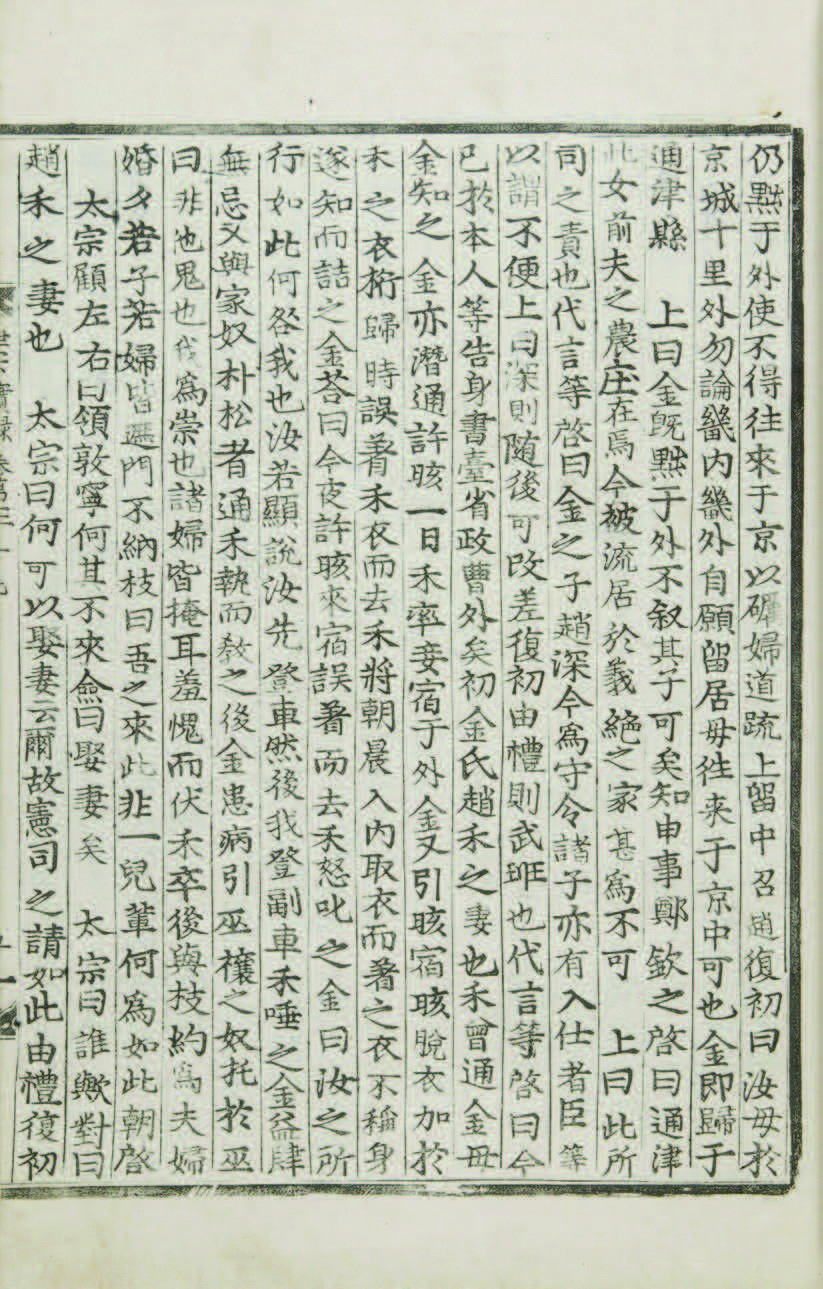 仍黜于外使不得往來于京以礪婦道䟽上留中召趙復初曰汝母於
京城十里外勿論畿內畿外自願留居毋往来于京中可也金即歸于
通津縣 上曰金旣黜于外不叙其子可矣知申事鄭欽之啓曰通津
此女前夫之農庄在焉今被流居於義絶之家甚爲不可 上曰此所
司之責也代言等啓曰金之子趙深今爲守令諸子亦有入仕者臣等
以謂不便上曰深則随後可改差復初由禮則武班也代言等啓曰今
已於本人等告身書臺省政曹外矣初金氏趙禾之妻也禾曾通金母
金知之 金亦潛通許晐一日禾率妾宿于外金又引晐宿晐脫衣加於
禾之衣桁歸時誤着禾衣而去禾將朝晨入內取衣而著之衣不稱身
遂知而詰之金荅曰今夜許晐來宿誤著而去禾怒叱之金曰汝之所
行如此何咎我也汝若顯說汝先登車然後我登副車禾唾之金益肆
無忌又與家奴朴松者通禾執而敎之後金患病引巫禳之奴托於巫
曰非他鬼也我爲祟也諸婦皆掩耳羞愧而伏禾卒後與枝約爲夫婦
婚夕若子若婦皆遮門不納枝曰吾之來此非一兒輩何爲如此朝啓
太宗顧左右曰領敦寧何其不來僉曰娶妻矣 太宗曰誰歟對曰
趙禾之妻也 太宗曰何可以娶妻云爾故憲司之請如此由禮復初